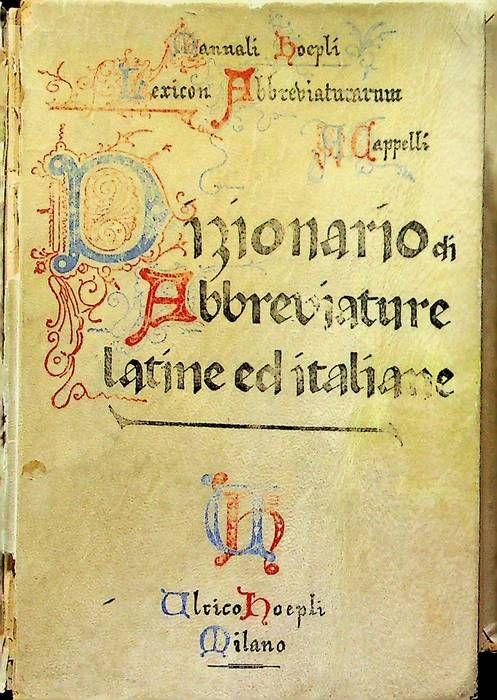 Manuali Hoepli
Lexicon Abbreviaturarum
A Cappelli
Dizionario di
Abbreviature
latine ed italiane
UH
Ulrico Hoepli
Milano